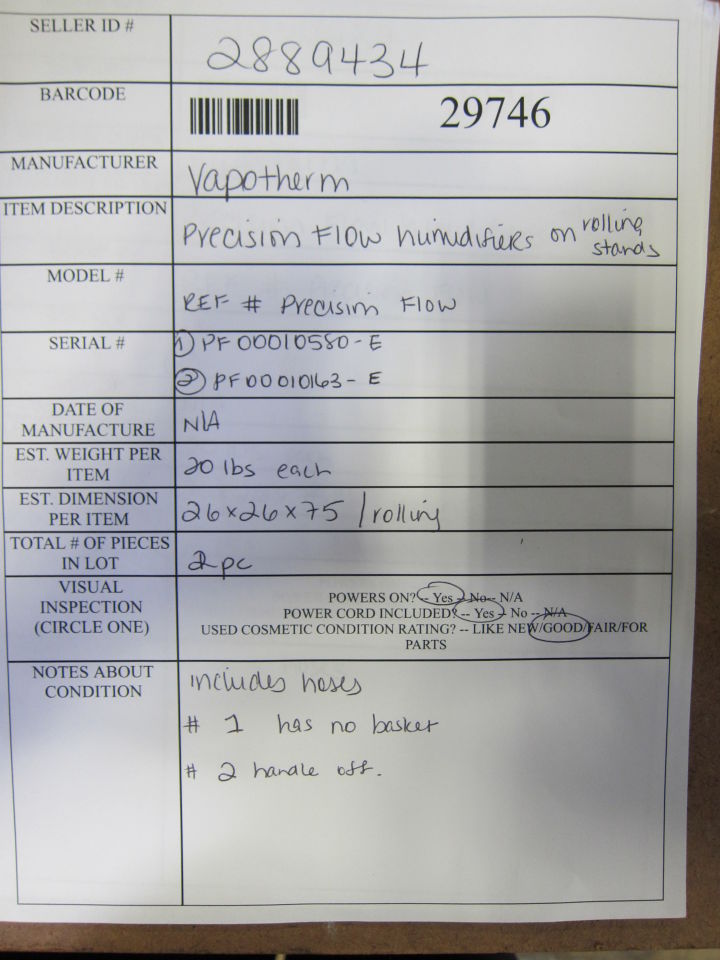 SELLER ID # 2889434
BARCODE 29746
MANUFACTURER Vapotherm
ITEM DESCRIPTION Precision Flow humidifiers on rolling stands
MODEL # REF # Precision Flow
SERIAL # ① PF00010580-E
② PF00010163-E
DATE OF
MANUFACTURE N/A
EST. WEIGHT PER
ITEM 20 lbs each
EST. DIMENSION
PER ITEM 26x26x75 / rolling
TOTAL # OF PIECES
IN LOT 2 pc
VISUAL
INSPECTION
(CIRCLE ONE)
POWERS ON? -- Yes -- No-- N/A
POWER CORD INCLUDED? -- Yes -- No -- N/A
USED COSMETIC CONDITION RATING? -- LIKE NEW/GOOD/FAIR/FOR
PARTS
NOTES ABOUT
CONDITION
includes hoses
# 1 has no basket
# 2 handle off.